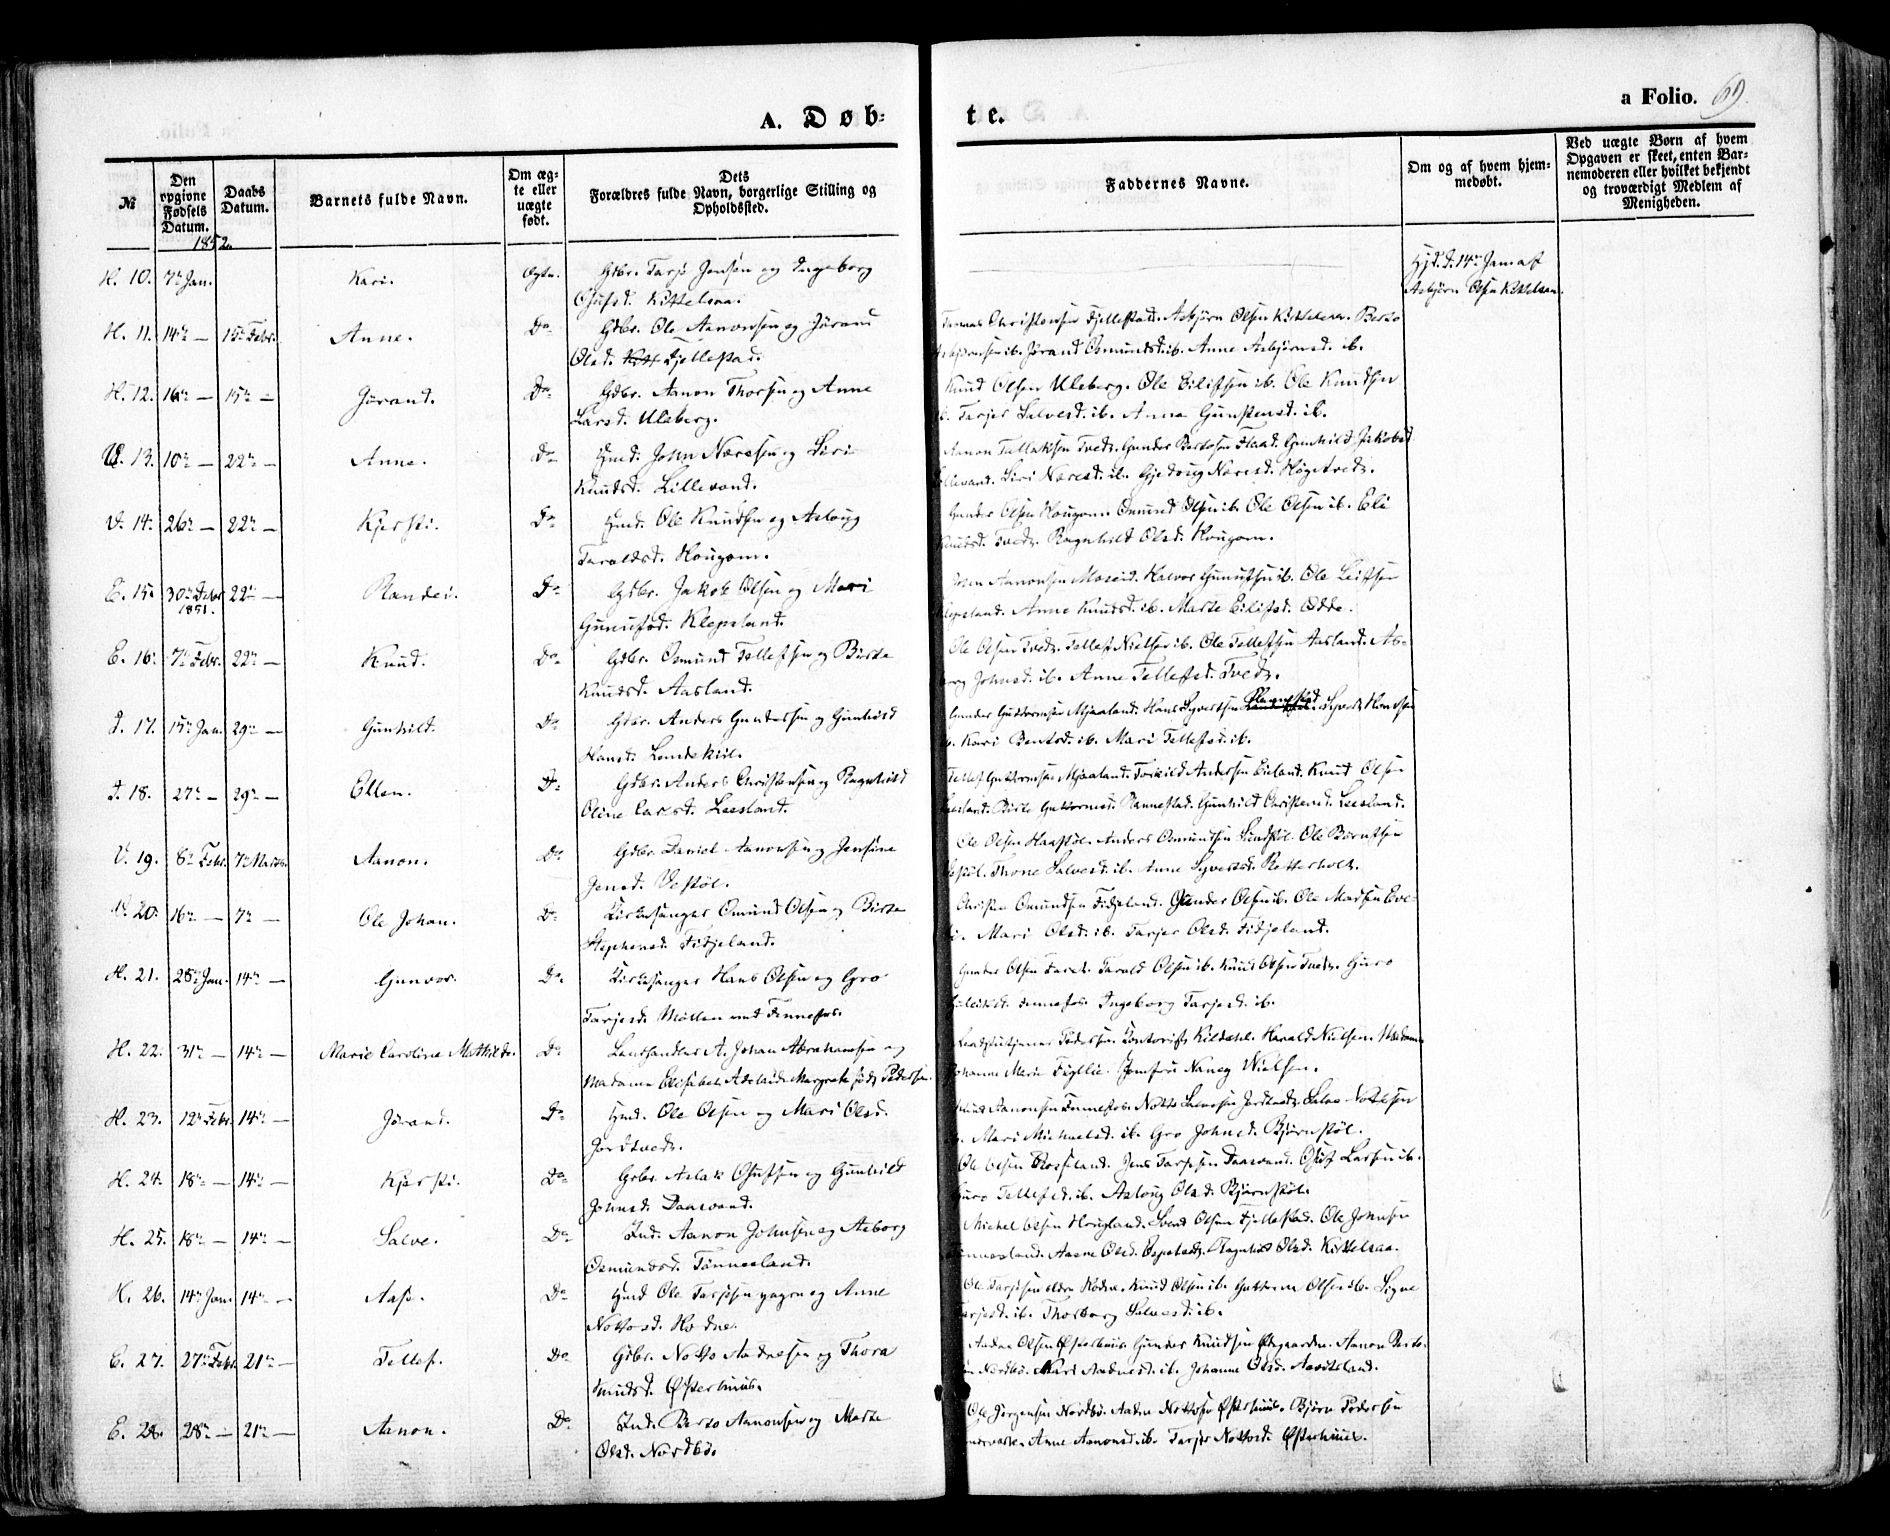 A. Døbte.
a Folio. 69.
№
Den opgivne Fødsels Datum.
Daabs Datum.
Barnets fulde Navn.
Om ægte eller uægte født.
Dets Forældres fulde Navn, borgerlige Stilling og Opholdssted.
Faddernes Navne.
Om og af hvem hjemmedøbt.
Ved uægte Børn af hvem Opgaven er skeet, enten Barnemoderen eller hvilket bekjendt og troværdigt Medlem af Menigheden.
1852.
H. 10. 7de Jan. Kari. Ægte. Gdbr. Tarje Jensen og Ingeborg
Osufsd. Kittelsaa.
Hjd. d. 14de Jan af
Asbjørn Olsen Kittelsaa.
H. 11. 14de — 15de Febr. Anne. Do Gdbr. Ole Aanonsen og Jørand
Olsd. Fjellestad.
Christensen Fjellestad. Asbjørn Olsen Kittelsaa. Berto
Asbjørnsen ib. Jørand Osmundsd. ib. Anne Asbjørnsd. ib.
H. 12. 16de — 15de — Jørand. Do Gdbr. Aanon Thorsen og Anne
Larsd. Uleberg.
Knud Olsen Uleberg. Ole Eilifsen ib. Ole Knudsen
ib. Tarjer Salvesd. ib. Anne Gunstensd. ib.
V. 13. 10de — 22de — Anne. Do Hmd. John Næresen og Siri
Knudsd. Lillevand.
Aanon Tellaksen Tvedt. Gunder Bertosen Flaad. Gunhild Jakobsd.
Lillevand. Siri Næresd. ib. Gjedoug Næresd. Høgetvedt.
V. 14. 26de — 22de — Kjersti. Do Hmd. Ole Knudsen og Aaslaug
Taraldsd. Hougom.
Gunder Olsen Hougom. Omund Olsen ib. Ole Olsen ib. Eli
Knudsd. Tvedt. Ragnhild Olsd. Hougom.
E. 15. 30de Debr 1851. 22de — Randei. Do Gdbr. Jakob Olsen og Mari
Gunufsd. Klepsland.
Aanonsen Moseid. Halvor Gunufsen ib. Ole Leifsen
Klepsland. Anne Knudsd. ib. Marte Eilifsd. Odde.
E. 16. 7de Febr. 22de — Knud. Do Gdbr. Osmund Tellefsen og Birte
Knudsd. Aasland.
Ole Olsen Tvedt. Tellef Nielsen ib. Ole Tellefsen Aasland. As-
borg Johnsd. ib. Anne Tellefsd. Tvedt.
I. 17. 15de Jan. 29de — Gunhild. Do Gdbr. Anders Gundersen og Gunhild
Hansd. Lendekiil.
Gunder Guttormsen Mjaaland. Hans Syvertsen
ib. Kari Bentsd. ib. Mari Tellefsd. ib.
I. 18. 27de — 29de — Ellen. Do Gdbr. Anders Christensen og Ragnhild
Oline Carlsd. Leesland.
Tellef Guttormsen Mjaaland. Torkild Andersen Eieland. Knud Olsen
Leesland. Birte Guttormsd. Rannestad. Gunhild Christensd. Leesland.
V. 19. 8de Febr. 7de Marts. Aanon. Do Gdbr. Daniel Aanonsen og Jensine
Jensd. Vestøl.
Ole Olsen Haastøl. Anders Osmundsen Lindstøl. Ole Berntsen
Vestøl. Thone Salvesd. ib. Anne Syvertsd. Ratterholt.
V. 20. 16de — 7de — Ole Johan. Do Kirkesanger Omund Olsen og Birte
Stephensd. Fidjeland.
Christen Omundsen Fidjeland. Gunder Olsen ib. Ole Madsen Eve-
bø. Mari Olsd. ib. Tarjer Olsd. Fidjeland.
H. 21. 28de Jan. 14de — Gunvor. Do Kirkesanger Hans Olsen og Gro
Tarjesd. Møllen ved Fennefos.
Gunder Olsen Faret. Tarald Olsen ib. Knud Olsen Tvedt. Guro
Fennefos. Ingeborg Tarjesd. ib.
H. 22. 31de — 14de — Marie Caroline Mathilde. Do Landhandler A. Johan Abrahamsen og
Madame Elisabet Adelaide Margrete født Pedersen.
Pedersen. Contorist Kildahl. Harald Nielsen. Madame
Johanne Marie Jomfru Nancy Nielsen.
H. 23. 12de Febr. 14de — Jørand. Do Hmd. Ole Olsen og Mari Olsd.
Jordtvedt.
Knud Aanonsen Fennefos. Notto Salvesen Jordtvedt. Salve Nottosen
ib. Mari Michaelsd. ib. Gro Johnsd. Bjørnstøl.
H. 24. 18de — 14de — Kjersti. Do Gdbr. Aslak Osufsen og Gunhild
Johnsd. Daasvand.
Ole Olsen Rosseland. Jens Tarjesen Daasvand. Osuf Larsen ib.
Guro Tellefsd. ib. Aaslaug Olsd. Bjørnstøl.
H. 25. 18de — 14de — Salve. Do Ind. Aanon Johnsen og Asborg
Osmundsd. Tønnesland.
Michel Olsen Hougland. Svend Olsen Fjellestad. Ole Johnsen
Tønnesland. Aasne Olsd. Espetvedt. Ragnhild Olsd. Kittelsaa.
H. 26. 14de Jan. 14de — Aase. Do Hmd Ole Tarjesen yngre og Anne
Nottosd. Hodne.
Ole Tarjesen eldre Hodne. Knud Olsen ib. Guttorm Olsen ib. Signe
Tarjesd. ib. Thorborg Salvesd. ib.
E. 27. 27de Febr. 21de — Tellef. Do Gdbr. Notto Aadnesen og Thora
Knudsd. Østerhuus.
Aadne Olsen Østerhuus. Gunder Knudsen Ødegaarden. Aanon Berto-
sen Nordbø. Mari Aadnesd. ib. Johanne Olsd. Aavitsland.
E. 28. 28de — 21de — Aanon. Do Ind. Berto Aanonsen og Marte
Olsd. Nordbø.
Ole Jørgensen Nordbø. Aadne Nottosen Østerhuus. Bjørn Pedersen
Anne Aanonsd. ib. Tarjer Nottosd. Østerhuus.